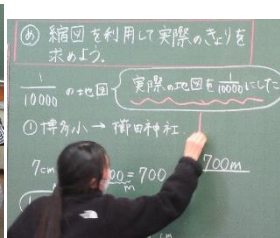 め 縮図を利用して実際のきょりを
求めよう。
1/10000 の地図
実際の地図を1/10000にした
① 博多小→櫛田神社
7cm
=700
700m